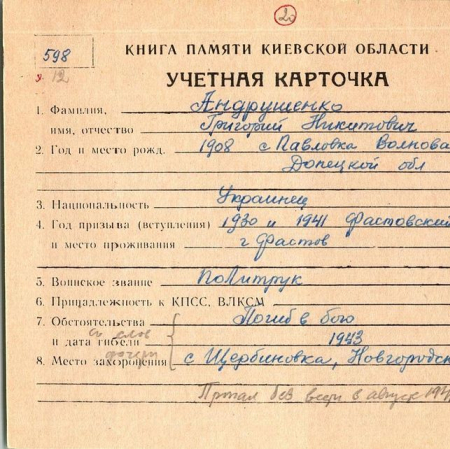 2
598
12
КНИГА ПАМЯТИ КИЕВСКОЙ ОБЛАСТИ
УЧЕТНАЯ КАРТОЧКА
1. Фамилия, Андрушенко
имя, отчество Григорий Никитович
2. Год и место рожд. 1908 с Павловка Волнова
Донецкой обл
3. Национальность Украинец
4. Год призыва (вступления) 1930 и 1941 Фастовский
и место проживания г Фастов
5. Воинское звание политрук
6. Принадлежность к КПСС, ВЛКСМ
7. Обстоятельства Погиб в бою
и дата гибели 1943
со слов дочери
8. Место захоронения с Щербиновка, Новгородск
Пропал без вести в август 194